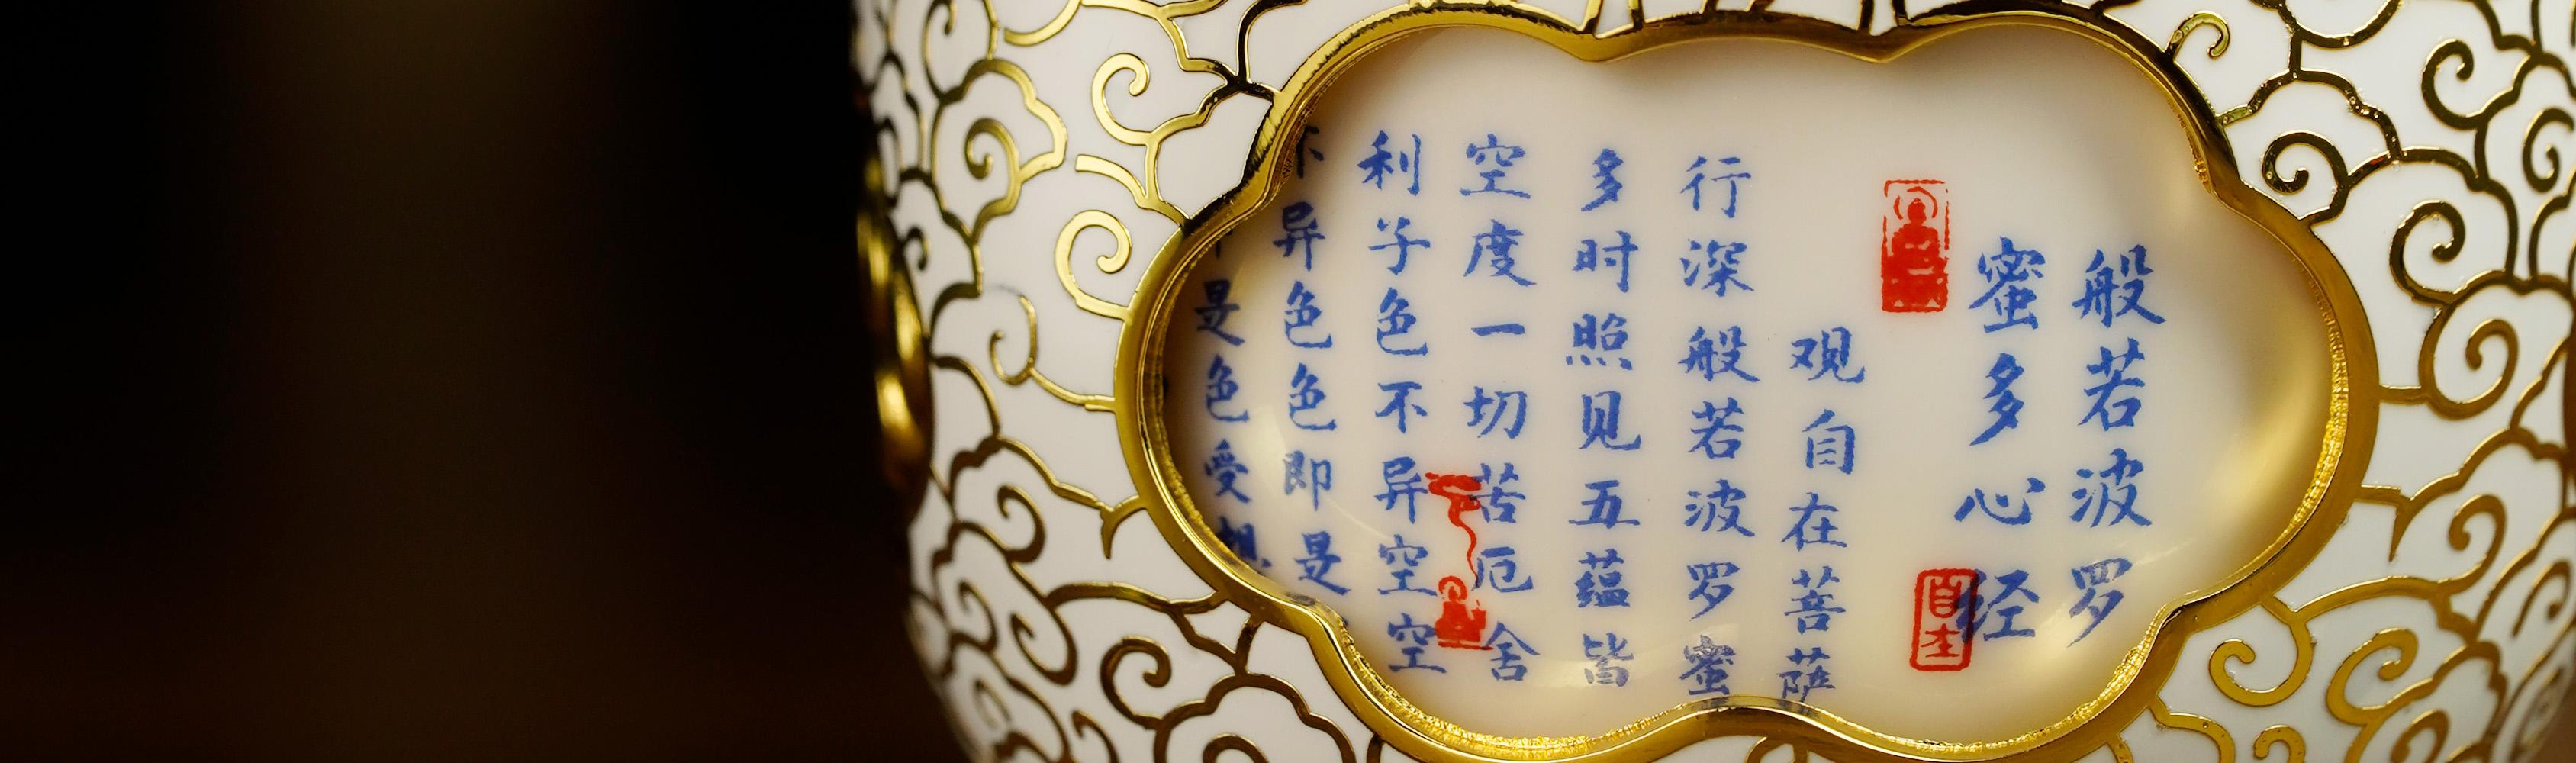 般若波罗
蜜多心经
自在
观自在菩萨
行深般若波罗蜜
多时照见五蕴皆
空度一切苦厄舍
利子色不异空空
不异色色即是
是色受想